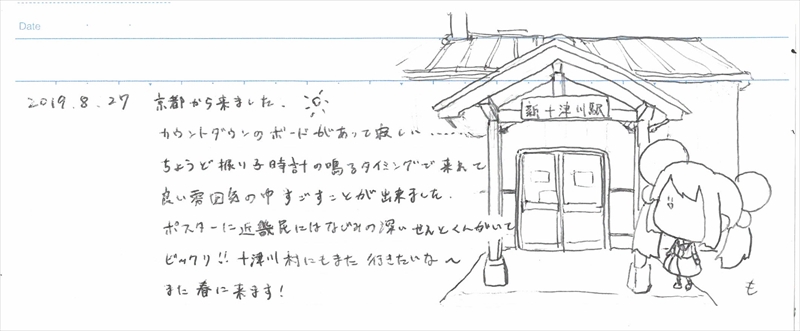 Date
2019.8.27 京都から来ました.
カウントダウンのボードがあって寂しい……
ちょうど振り子時計の鳴るタイミングで来れて
良い雰囲気の中すごすことが出来ました.
ポスターに近畿民にはなじみの深いせんとくんがいて
ビックリ!! 十津川村にもまた行きたいな〜
また春に来ます!
新十津川駅
も